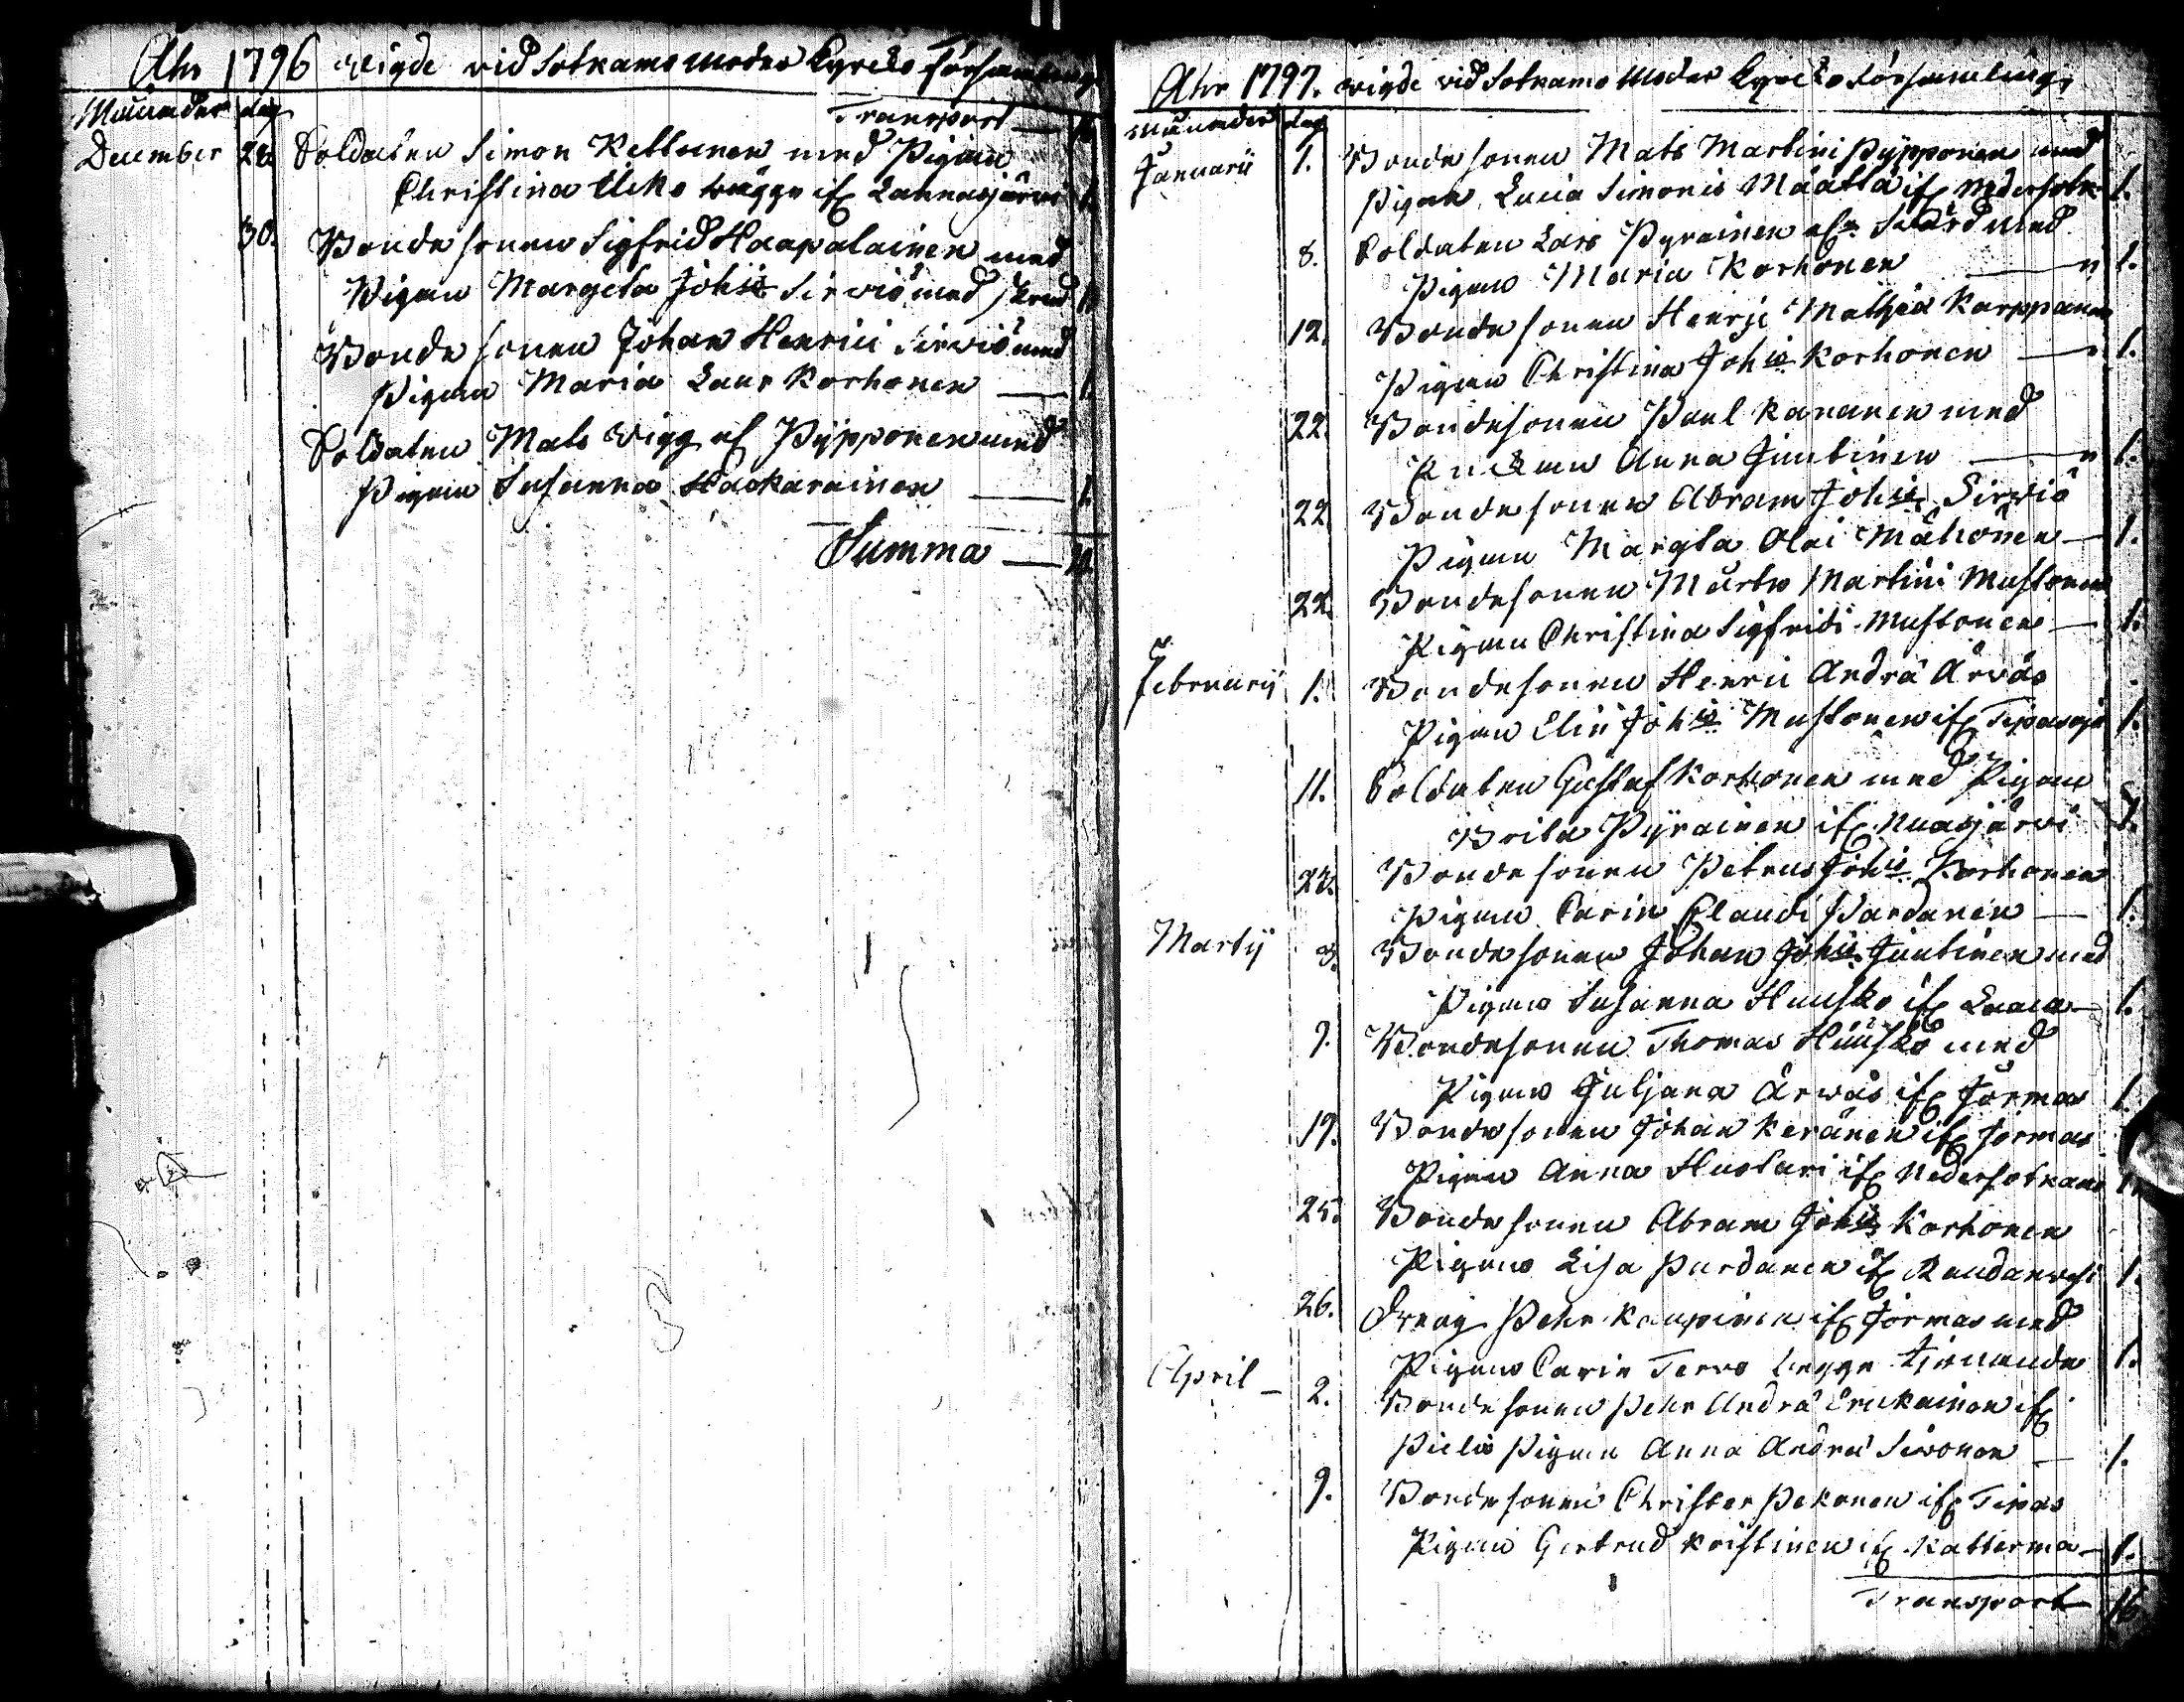 Åhr 1796 wigde vid Sotkamo Moder Kyrcko Församling
Månader dag Transport
December 28 Soldaten Simon Kettunen med Pigan
Christina Ucko begge if Lannasjärvi 1.
30. Bondesonen Sigfrid Haapalainen med
Pigan Margeta Johis Sirviö med
Bondesonen Johan Henrici Sirviö med
Pigan Maria Laur Korhonen — 1.
Soldaten Mats Wigg el Pypponen med
Pigan Susanna Hackarainen — 1.
Summa —
Åhr 1797. wigde vid Sotkamo Moder Kyrcko Församling,
Månader dag
Januarii 1. Bondesonen Mats Martini Pypponen med
Pigan Lucia Simonis Määttä if Nedersotk 1.
8. Soldaten Lars Pyrainen els Svärd med
Pigan Maria Korhonen — 1.
12. Bondesonen Henric Mathiæ Karppanen
Pigan Christina Johis Korhonen — 1.
22. Bondesonen Paul Kananen med
Änckan Anna Juntinen — 1.
22 Bondesonen Abram Johis Sirviö
Pigan Margta Olai Mähönen — 1.
22. Bondesonen Mårten Martini Mustonen
Pigan Christina Sigfridi Mustonen — 1.
Februarij 1. Bondesonen Henric Andræ Ärväs
Pigan Elin Johis Mustonen if Tipasoja 1.
11. Soldaten Gustaf Korhonen med Pigan
Brita Pyrainen if Nuasjärvi 1.
23. Bondesonen Petrus Johis Korhonen
Pigan Carin Claudi Pardanen — 1.
Martij 3. Bondesonen Johan Johis Juntinen med
Pigan Susanna Huusko if — 1.
7. Bondesonen Thomas Huusko med
Pigan Juljana Ärwäs if Jormas 1.
19. Bondesonen Johan Keränen if Jormas
Pigan Anna Hustari if Nedersotkamo 1.
25. Bondesonen Abram Johis Korhonen
Pigan Lisa Purdanen if Raudanvesi 1.
26. Dreng Pehr Kaupinen if Jormas med
Pigan Carin Tervo begge tjenande 1.
April — 2. Bondesonen Pehr Andræ Eruckainen if
Pielis Pigan Anna Andræ Sivonen — 1.
9. Bondesonen Christer Pekonen if Tipas
Pigan Gertrud Kristinen if Katterma — 1.
Transport 16